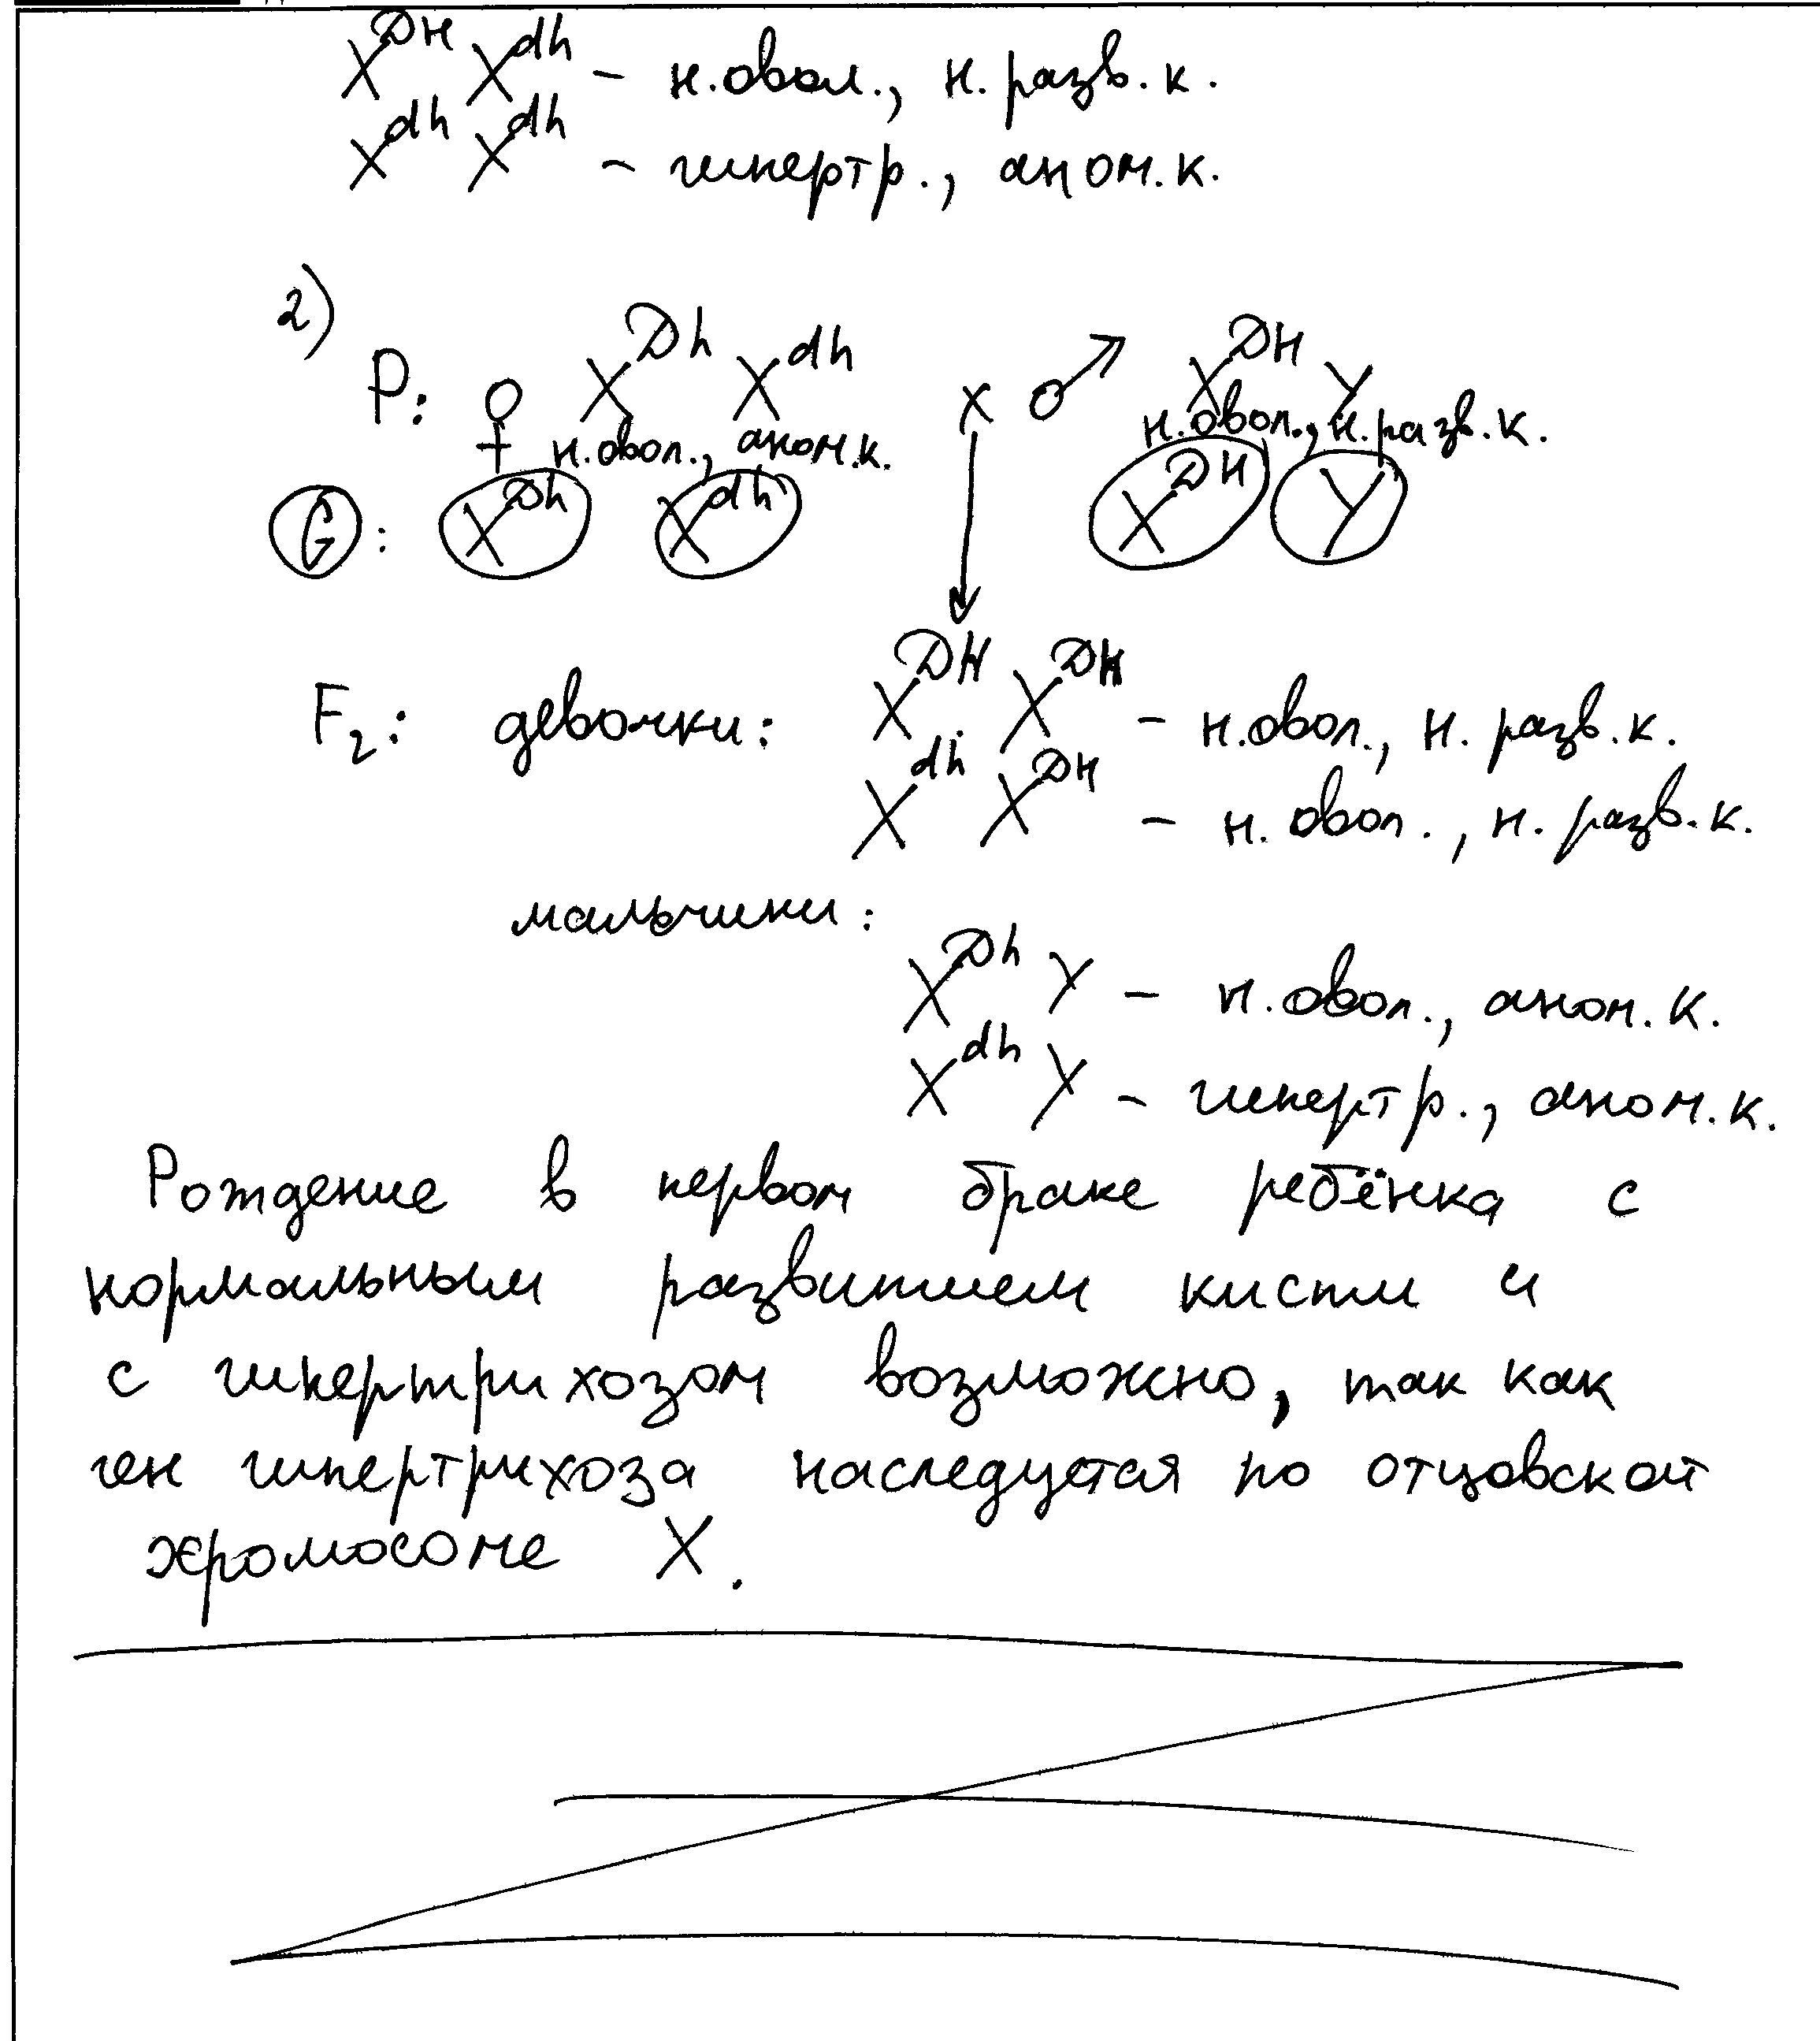 X^DH X^dh – н.овол., н. разв. к.
X^dh X^dh – гипертр., аном. к.
2)
P: ♀ X^Dh X^dh x ♂ X^DH Y
н.овол., аном.к. н.овол., н.разв.к.
G: X^Dh X^dh X^DH Y
F2: девочки: X^DH X^DH – н.овол., н. разв. к.
X^dh X^DH – н. овол., н. разв. к.
мальчики:
X^Dh Y – н.овол., аном. к.
X^dh Y – гипертр., аном. к.
Рождение в первом браке ребёнка с
нормальным развитием кисти и
с гипертрихозом возможно, так как
ген гипертрихоза наследуется по отцовской
хромосоме X.